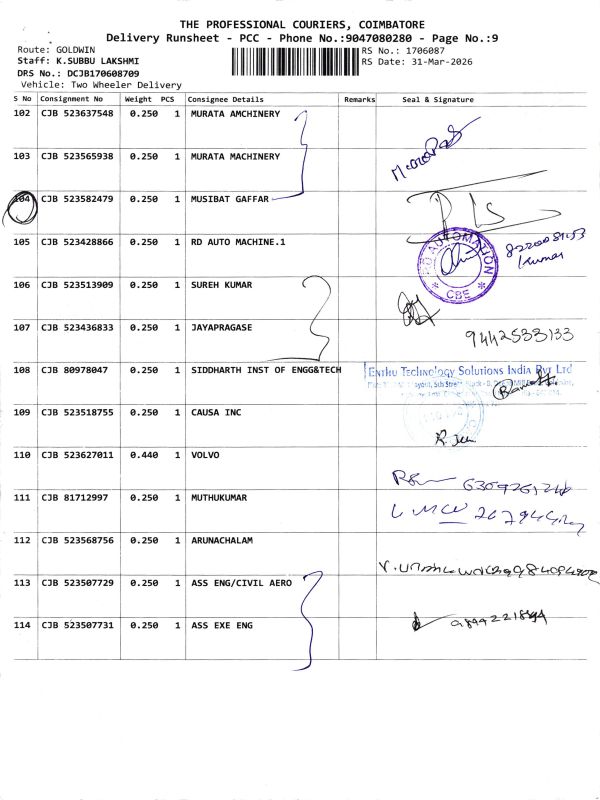 THE PROFESSIONAL COURIERS, COIMBATORE
Delivery Runsheet - PCC - Phone No.:9047080280 - Page No.:9
Route: GOLDWIN
RS No.: 1706087
Staff: K.SUBBU LAKSHMI
RS Date: 31-Mar-2026
DRS No.: DCJB170608709
Vehicle: Two Wheeler Delivery
S No Consignment No Weight PCS Consignee Details Remarks Seal & Signature
102 CJB 523637548 0.250 1 MURATA AMCHINERY
103 CJB 523565938 0.250 1 MURATA MACHINERY
104 CJB 523582479 0.250 1 MUSIBAT GAFFAR
105 CJB 523428866 0.250 1 RD AUTO MACHINE.1
RD AUTOMATION
* CBE *
Kumar
106 CJB 523513909 0.250 1 SUREH KUMAR
107 CJB 523436833 0.250 1 JAYAPRAGASE
9442533133
108 CJB 80978047 0.250 1 SIDDHARTH INST OF ENGG&TECH
Enthu Technology Solutions India Pvt Ltd
109 CJB 523518755 0.250 1 CAUSA INC
110 CJB 523627011 0.440 1 VOLVO
111 CJB 81712997 0.250 1 MUTHUKUMAR
112 CJB 523568756 0.250 1 ARUNACHALAM
113 CJB 523507729 0.250 1 ASS ENG/CIVIL AERO
114 CJB 523507731 0.250 1 ASS EXE ENG